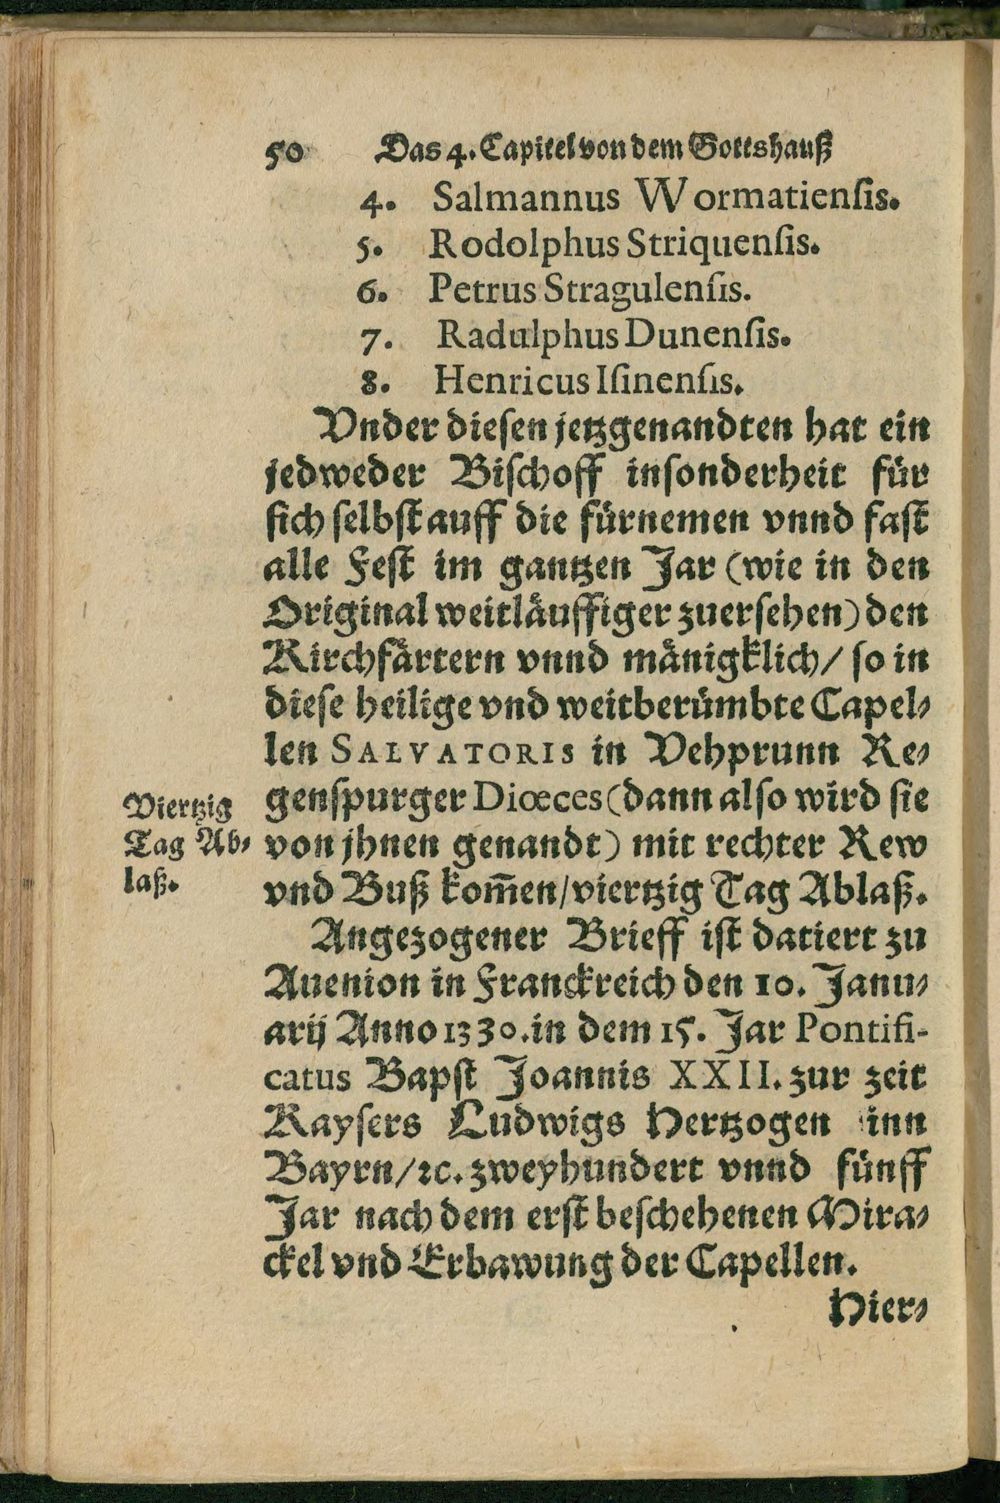 50 Das 4. Capitel von dem Gottshauß
4. Salmannus Wormatienſis.
5. Rodolphus Striquenſis.
6. Petrus Stragulenſis.
7. Radulphus Dunenſis.
8. Henricus Iſinenſis.
Vnder dieſen jetzgenandten hat ein
jedweder Biſchoff inſonderheit für
ſich ſelbſt auff die fürnemen vnnd faſt
alle Feſt im gantzen Jar (wie in den
Original weitläuffiger zuerſehen) den
Kirchfärtern vnnd mänigklich/ ſo in
dieſe heilige vnd weitberümbte Capel⸗
len SALVATORIS in Vehprunn Re⸗
genſpurger Diœces (dann alſo wird ſie
von jhnen genandt) mit rechter Rew
vnd Buß kom̃en/ viertzig Tag Ablaß.
Viertzig
Tag Ab⸗
laß.
Angezogener Brieff iſt datiert zu
Auenion in Franckreich den 10. Janu⸗
arij Anno 1330. in dem 15. Jar Pontifi-
catus Bapſt Joannis XXII. zur zeit
Kayſers Ludwigs Hertzogen inn
Bayrn/ ꝛc. zweyhundert vnnd fünff
Jar nach dem erſt beſchehenen Mira⸗
ckel vnd Erbawung der Capellen.
Hier⸗